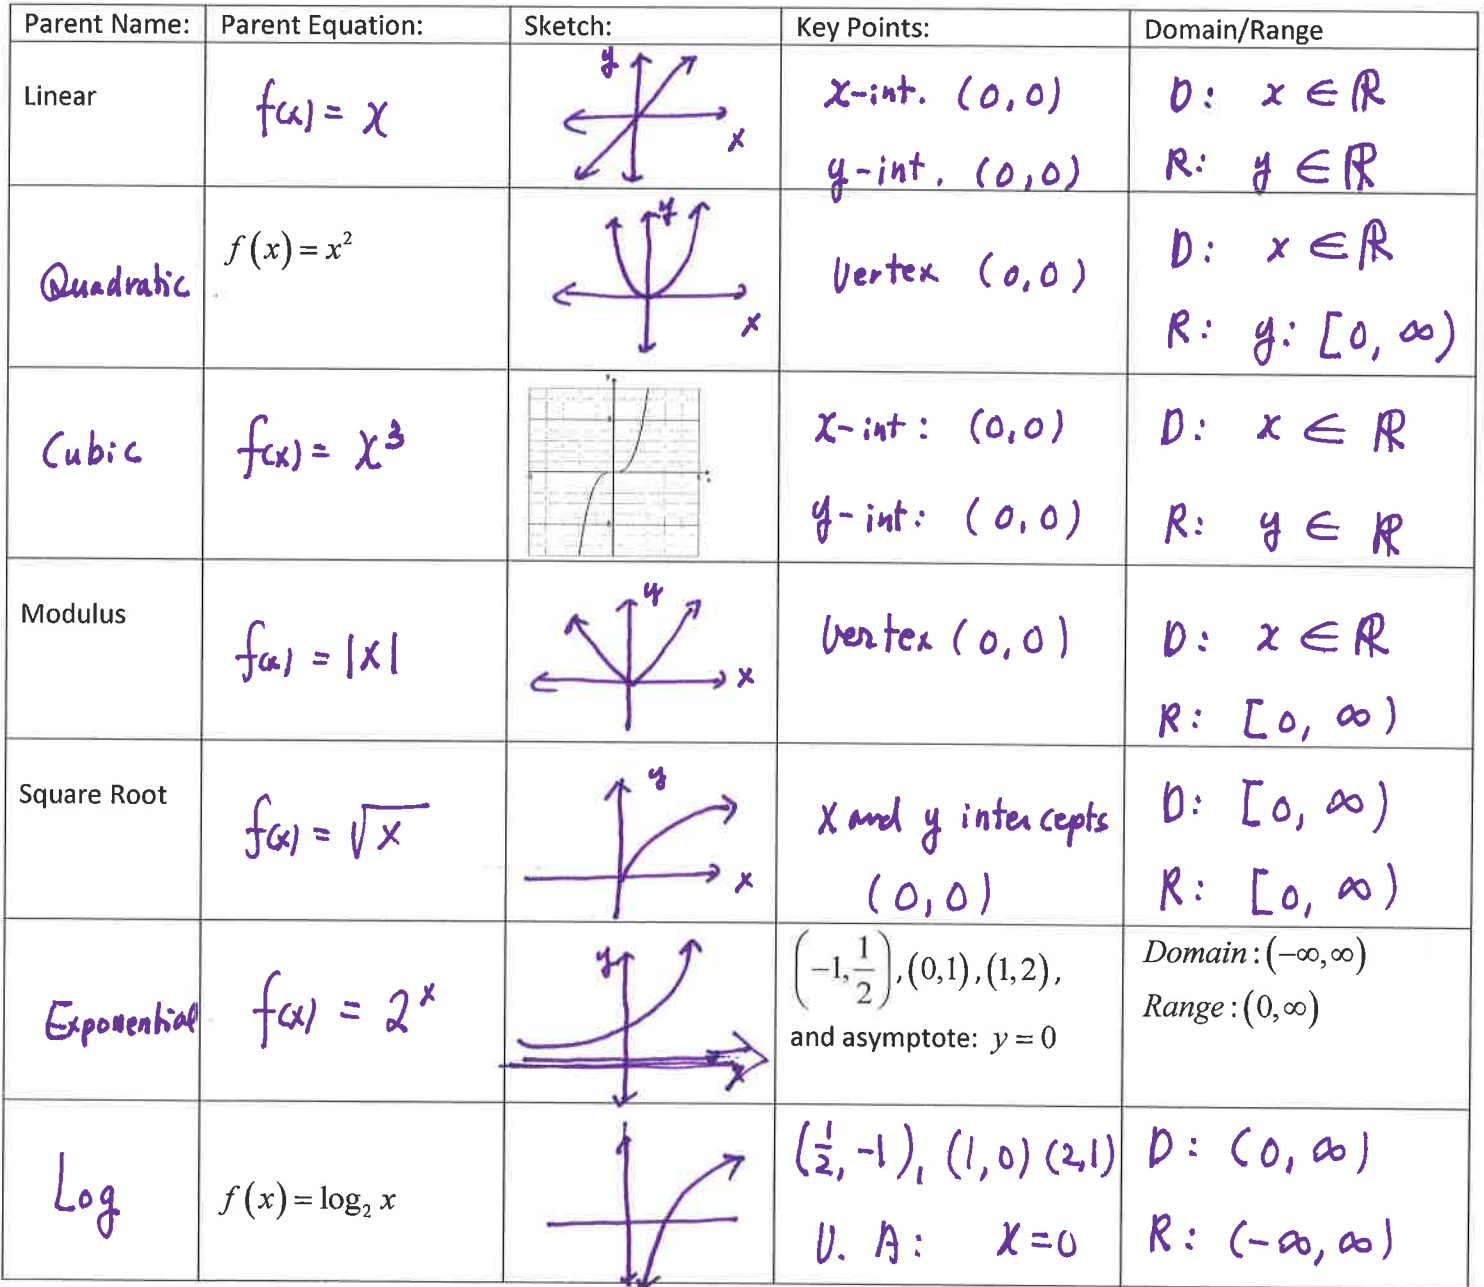 Parent Name: Parent Equation: Sketch: Key Points: Domain/Range
Linear
f(x) = x
y
x
x-int. (0,0)
y-int. (0,0)
D: x ∈ ℝ
R: y ∈ ℝ
Quadratic
f(x) = x²
y
x
Vertex (0,0)
D: x ∈ ℝ
R: y: [0, ∞)
Cubic
f(x) = x³
x-int: (0,0)
y-int: (0,0)
D: x ∈ ℝ
R: y ∈ ℝ
Modulus
f(x) = |x|
y
x
Vertex (0,0)
D: x ∈ ℝ
R: [0, ∞)
Square Root
f(x) = √x
y
x
x and y intercepts
(0,0)
D: [0, ∞)
R: [0, ∞)
Exponential
f(x) = 2ˣ
y
x
(-1, 1/2), (0,1), (1,2),
and asymptote: y = 0
Domain: (-∞,∞)
Range: (0,∞)
Log
f(x) = log₂ x
(1/2, -1), (1,0) (2,1)
V. A: x=0
D: (0, ∞)
R: (-∞, ∞)